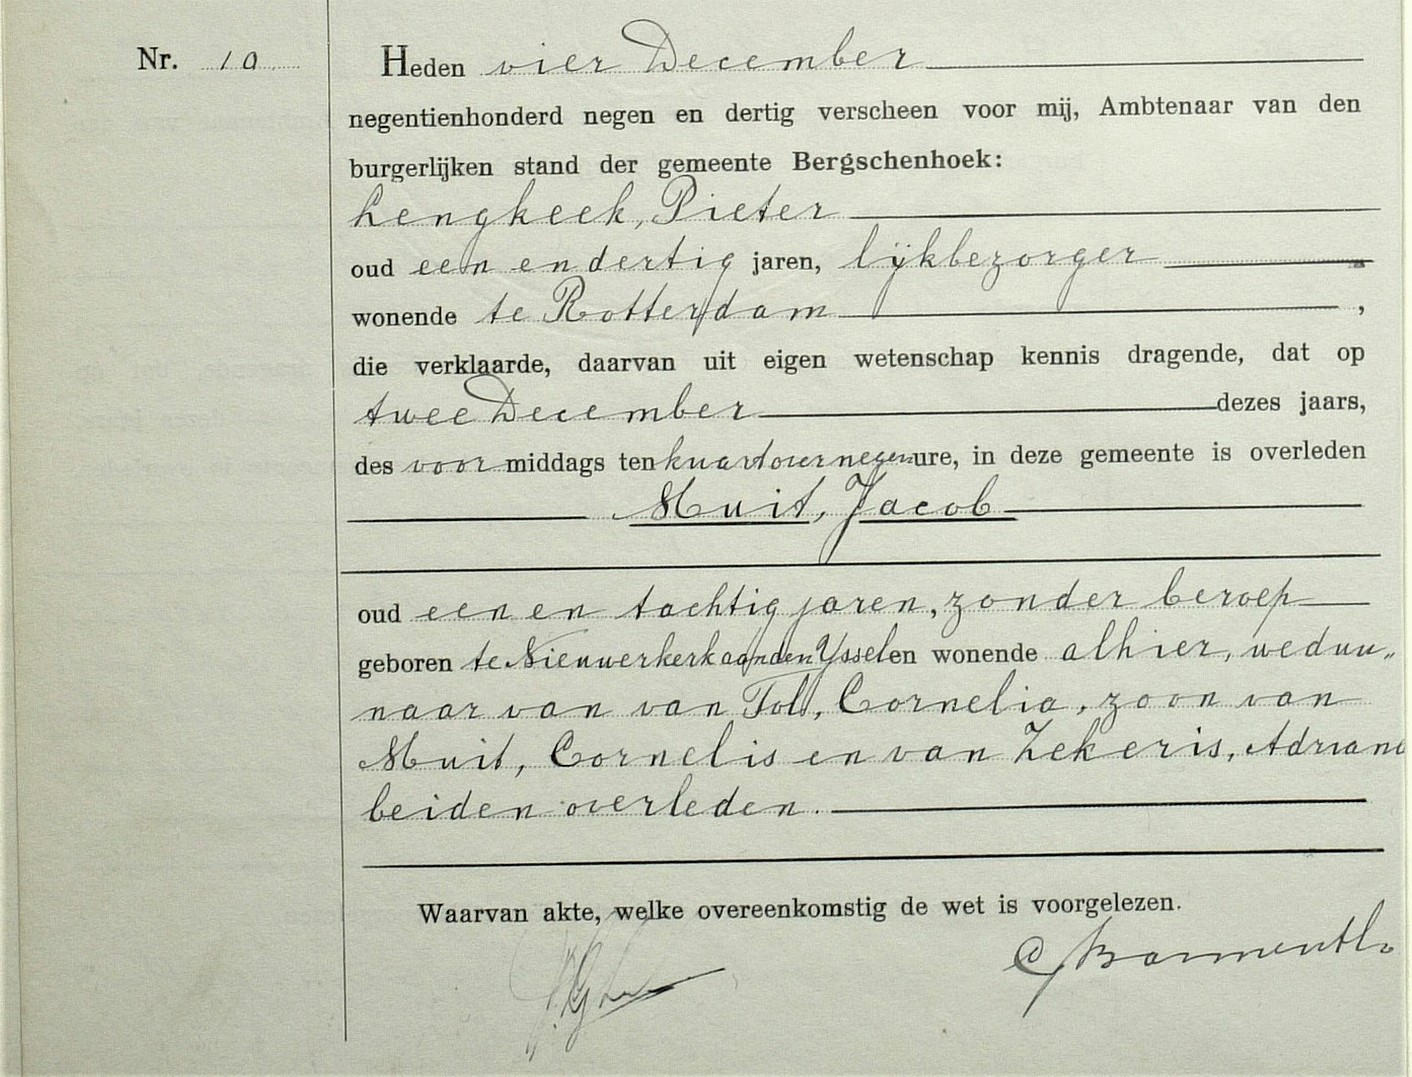 Nr. 10
Heden vier December
negentienhonderd negen en dertig verscheen voor mij, Ambtenaar van den
burgerlijken stand der gemeente Bergschenhoek:
Lengkeek, Pieter
oud een en dertig jaren, lijkbezorger
wonende te Rotterdam ,
die verklaarde, daarvan uit eigen wetenschap kennis dragende, dat op
twee December dezes jaars,
des voormiddags ten kwartovernegen ure, in deze gemeente is overleden
Muit, Jacob
oud een en tachtig jaren, zonder beroep
geboren te Nieuwerkerkaanden Yssel en wonende alhier, weduw„
naar van van Tol, Cornelia, zoon van
Muit, Cornelis en van Zekeris, Adriana
beiden overleden.
Waarvan akte, welke overeenkomstig de wet is voorgelezen.